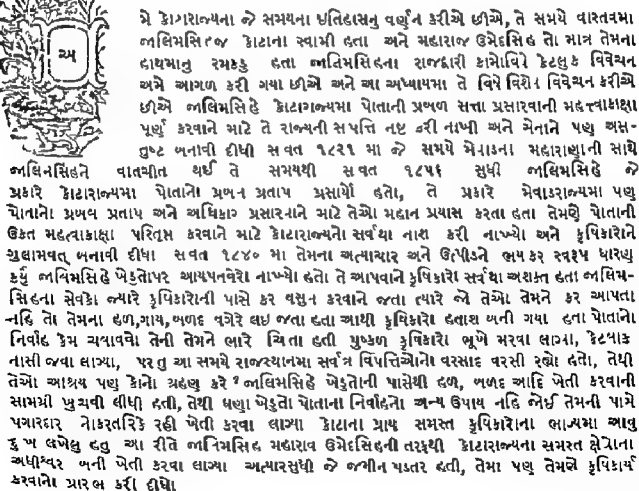 અ
મે કોટારાજ્યના જે સમયના ઇતિહાસનુ વર્ણન કરીએ છીએ, તે સમયે વાસ્તવમા
જાલિમસિંહજ કોટાના સ્વામી હતા અને મહારાજ ઉમેદસિંહ તો માત્ર તેમના
હાથમાનુ રમકડુ હતા જાલિમસિંહના રાજદ્વારી કામોવિષે કેટલુક વિવેચન
અમે આગળ કરી ગયા છીએ અને આ અધ્યાયમા તે વિષે વિશેષ વિવેચન કરીએ
છીએ જાલિમસિંહે કોટારાજ્યમા પોતાની પ્રબળ સત્તા પ્રસારવાની મહત્ત્વાકાક્ષા
પૂર્ણ કરવાને માટે તે રાજ્યની સપત્તિ નષ્ટ કરી નાખી અને સેનાને પણ અસ-
તુષ્ટ બનાવી દીધી સવત ૧૮૨૧ મા જે સમયે મેવાડના મહારાણાની સાથે
જાલિમસિંહને વાતચીત થઈ તે સમયથી સવત ૧૮૫૬ સુધી જાલિમસિંહે જે
પ્રકારે કોટારાજ્યમા પોતાનો પ્રબલ પ્રતાપ પ્રસાર્યો હતો, તે પ્રકારે મેવાડરાજ્યમા પણ
પોતાનો પ્રબળ પ્રતાપ અને અધિકાર પ્રસારવાને માટે તેઓ મહાન પ્રયાસ કરતા હતા તેમણે પોતાની
ઉક્ત મહત્વાકાક્ષા પરિતૃપ્ત કરવાને માટે કોટારાજ્યનો સર્વથા નાશ કરી નાખ્યો અને કૃષિકારોને
ગુલામવત્ બનાવી દીધા સવત ૧૮૪૦ મા તેમના અત્યાચાર અને ઉત્પીડને ભયકર સ્વરૂપ ધારણ
કર્યું જાલિમસિંહે ખેડુતોપર આયપનવેરો નાખ્યો હતો તે આપવાને કૃષિકારો સર્વથા અશક્ત હતા જાલિમ-
સિંહના સેવકો જ્યારે કૃષિકારોની પાસે કર વસુન કરવાને જતા ત્યારે જો તેઓ તેમને કર આપતા
નહિ તો તેમના હળ,ગાય,બળદ વગેરે લઇ જતા હતા આથી કૃષિકારો હતાશ બની ગયા હતા પોતાનો
નિર્વાહ કેમ ચલાવવો તેની તેમને ભારે ચિંતા હતી પુષ્કળ કૃષિકારો ભૂખે મરવા લાગ્યા, કેટલાક
નાસી જવા લાગ્યા, પરતુ આ સમયે રાજસ્થાનમા સર્વત્ર વિપત્તિઓનો વરસાદ વરસી રહ્યો હતો, તેથી
તેઓ આશ્રય પણ કોનો ગ્રહણ કરે ? જાલિમસિંહે ખેડુતોની પાસેથી હળ, બળદ આદિ ખેતી કરવાની
સામગ્રી ખુચવી લીધી હતી, તેથી ઘણા ખેડુતો પોતાના નિર્વાહનો અન્ય ઉપાય નહિ જોઈ તેમની પાસે
પગારદાર નોકરતરિકે રહી ખેતી કરવા લાગ્યા કોટાના પ્રાય સમસ્ત કૃષિકારોના ભાગ્યમા આવુ
દુખ લખેલુ હતુ આ રીતે જાલિમસિંહ મહારાવ ઉમેદસિંહની તરફથી કોટારાજ્યના સમસ્ત ક્ષેત્રોના
અધીશ્વર બની ખેતી કરવા લાગ્યા અત્યારસુધી જે જમીન પડતર હતી, તેમા પણ તેમણે કૃષિકાર્ય
કરવાનો પ્રારભ કરી દીધો